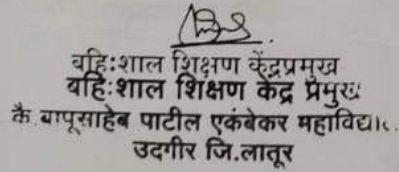 बहि:शाल शिक्षण केंद्रप्रमुख
बहि:शाल शिक्षण केंद्र प्रमुख
कै.बापूसाहेब पाटील एकंबेकर महाविद्या.
उदगीर जि.लातूर